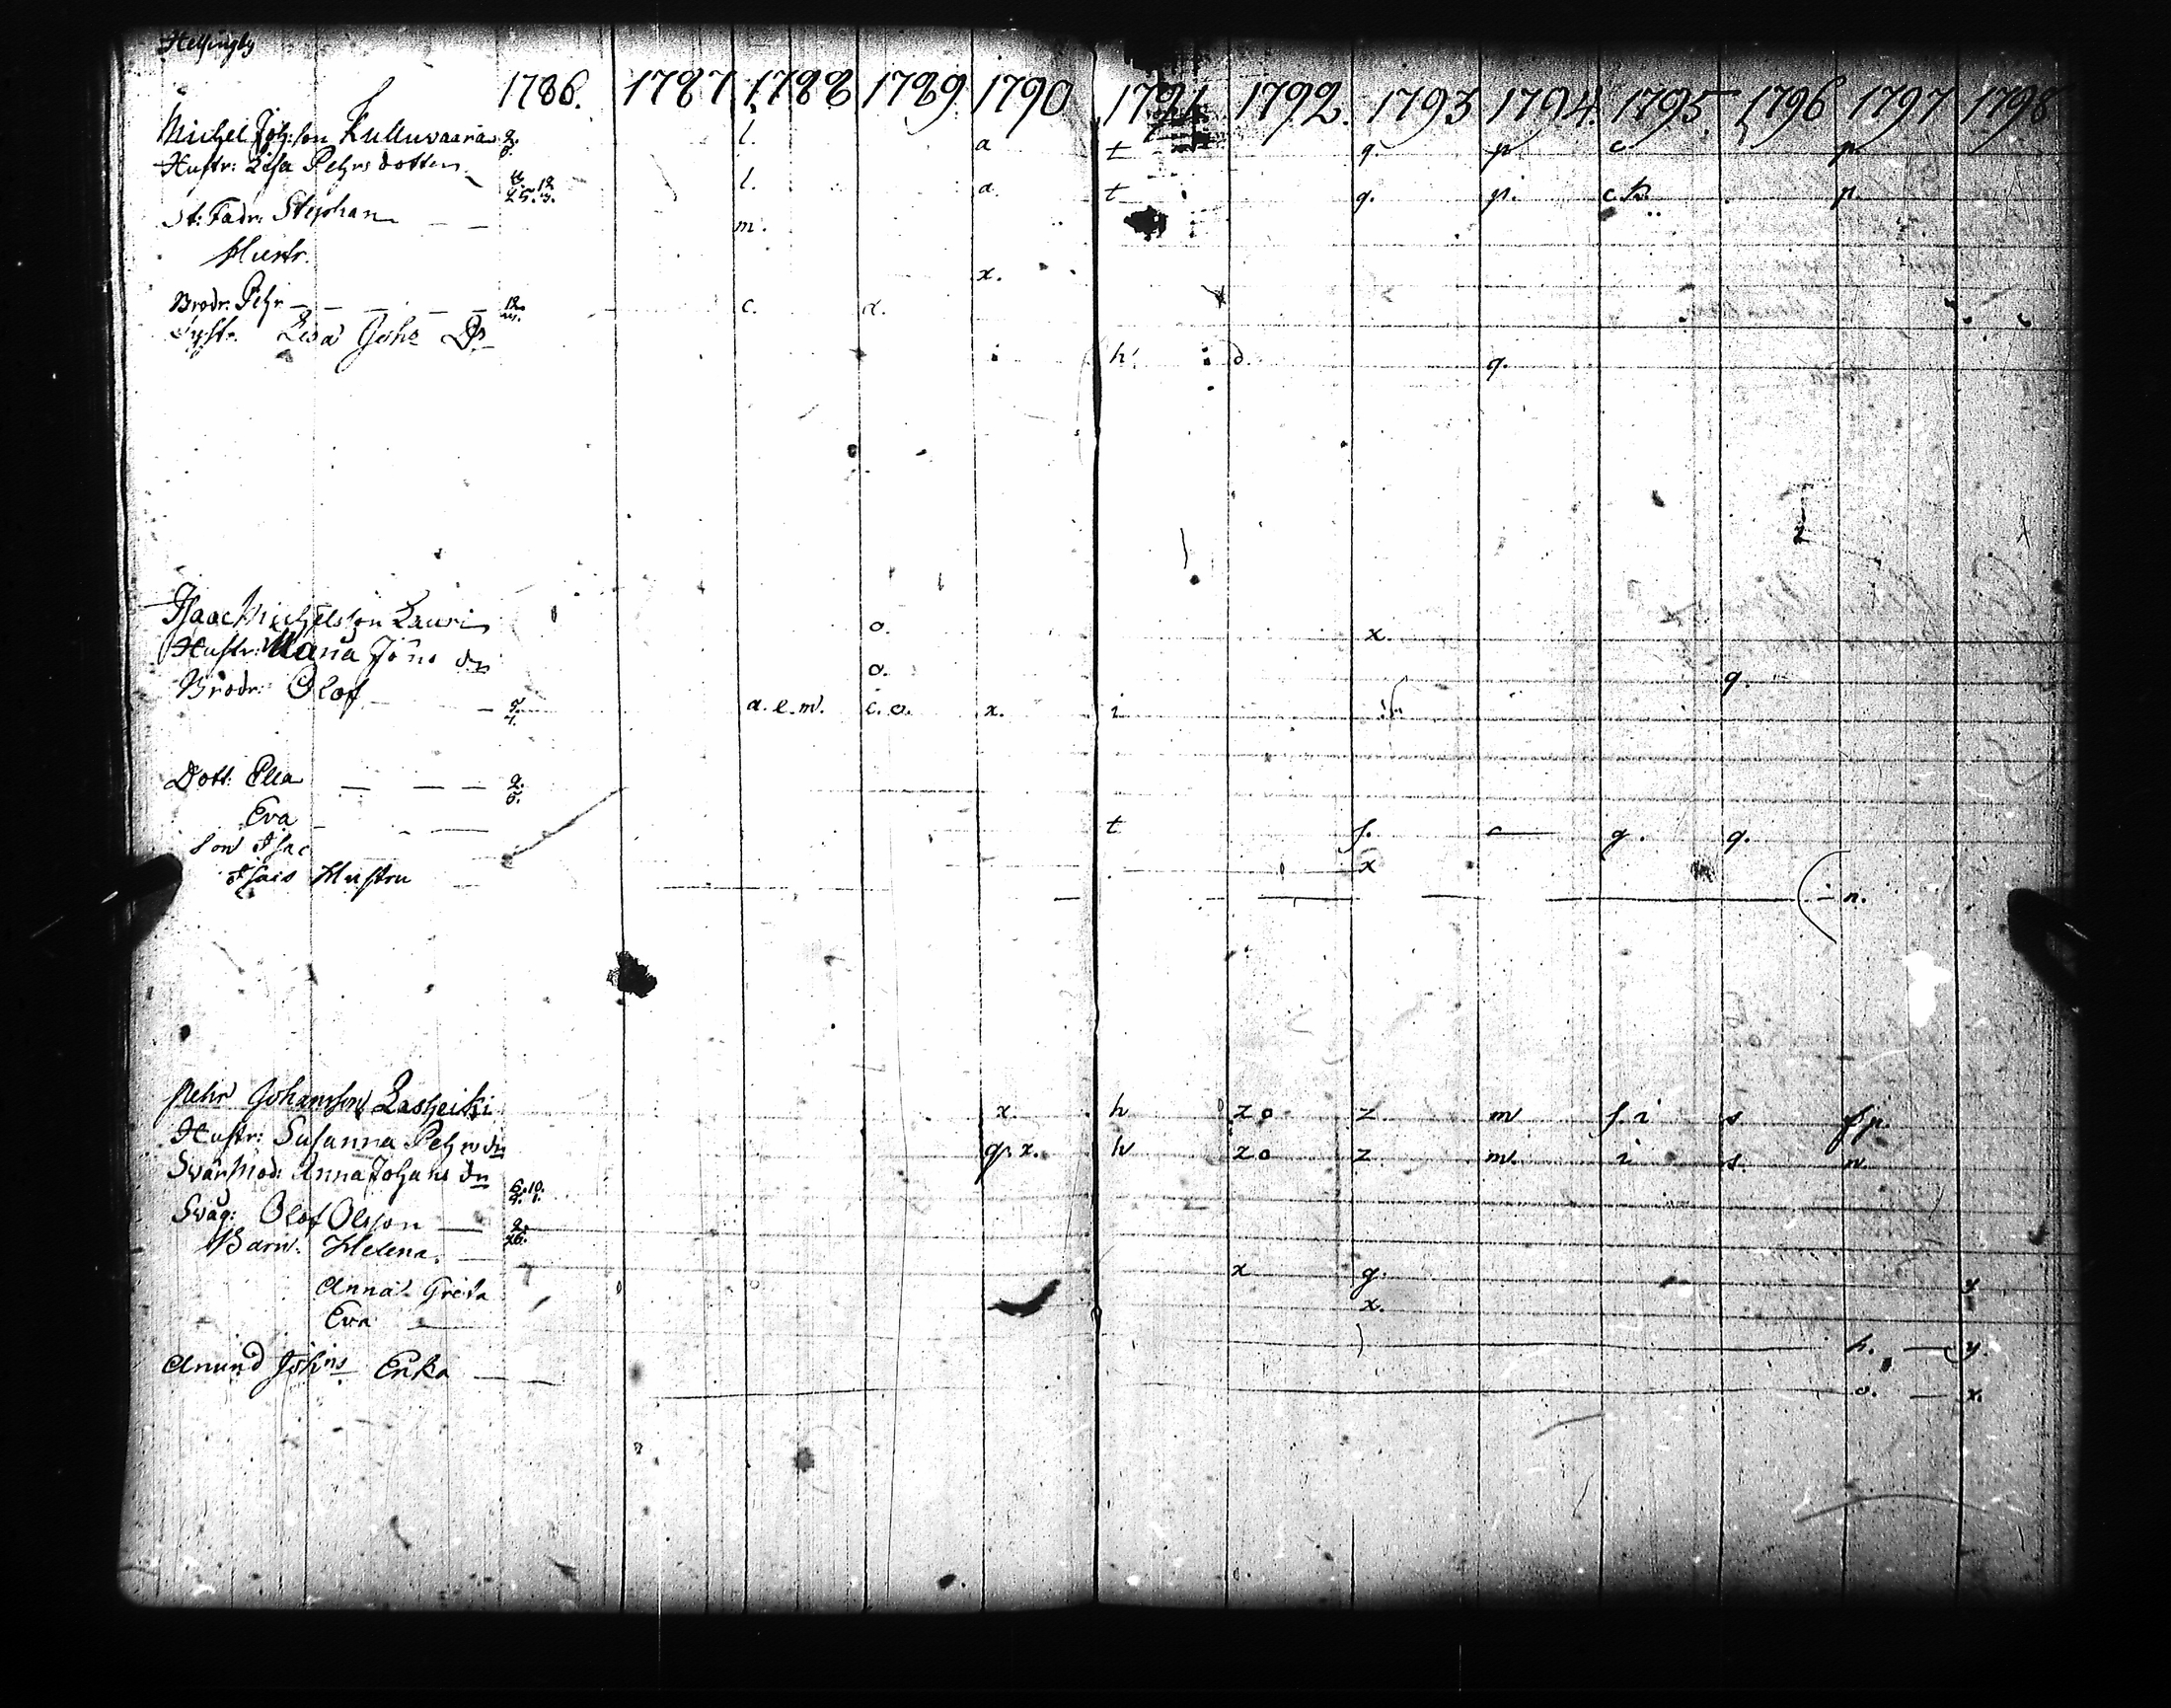 Helsingby
1786. 1787 1788 1789 1790 1791 1792. 1793 1794. 1795. 1796 1797 1798
Michel Joh:son Kulluvaara 2. l. a t q. p c p.
Hustr: Lisa Pehrsdotter 8. 12 25. l. a. t q. p. c. h. p.
st: Fadr: Stephan m.
Hustr. x.
Brodr. Pehr 12. c. a.
Syst. Lisa Johs Dr h. d. q.
Isaac Michelsson Lauri o. x.
Hustr: Maria Johs dr o. q.
Brodr: Olof a. e. m. c. o. x. i
Dott: Ella 2. 5.
Eva t f. a g. q.
Son Isac x
Isacs Hustru n.
Pehr Johansson Lasheiki x. h z o z m f. i s f p.
Hustr: Susanna Pehrs dr q. x. h z o z m. i s. n
SvärMod: Anna Johans dr 6. 10. 1.
Svåg: Olof Olsson 2. 26.
Barn. Helena x g.
Anna Greta x. y
Eva h. y.
Anund Johns Erka o. x.